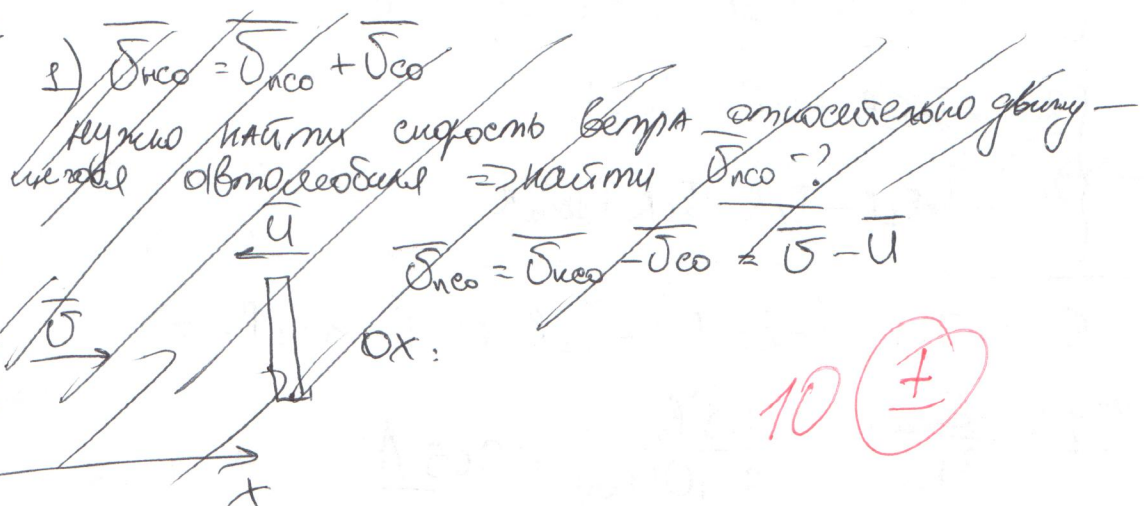 1) υ̅нсо = υ̅псо + υ̅со
нужно найти скорость ветра относительно движу-
щегося автомобиля => найти υ̅псо - ?
u̅
υ̅псо = υ̅нсо - υ̅со = υ̅ - u̅
υ̅
OX:
10 ±
x